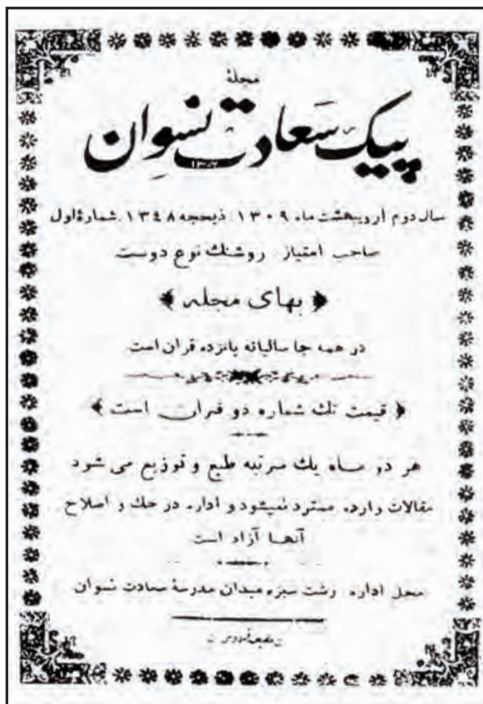 مجلهٔ
پیک سعادت نسوان
۱۳۰۶
سال دوم اردیبهشت ماه ۱۳۰۹ ذیحجه ۱۳۴۸ شمارهٔ اول
صاحب امتیاز: روشنك نوع دوست
بهای مجله
در همه جا سالیانه پانزده قران است
قیمت تك شماره دو قران است
هر دو ماه یك مرتبه طبع و توزیع می شود
مقالات وارده مسترد نمیشود و اداره در حك و اصلاح
آنها آزاد است
محل اداره رشت سبزه میدان مدرسهٔ سعادت نسوان